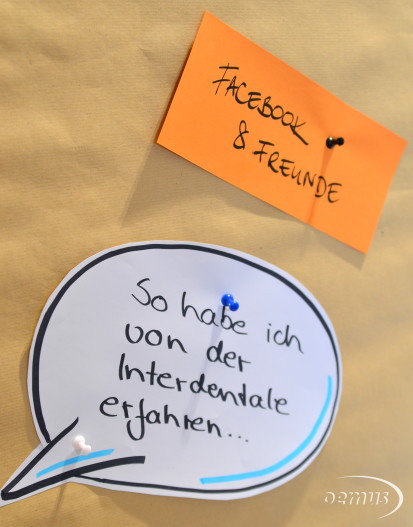 FACEBOOK
& FREUNDE
So habe ich
von der
Interdentale
erfahren...
oemus